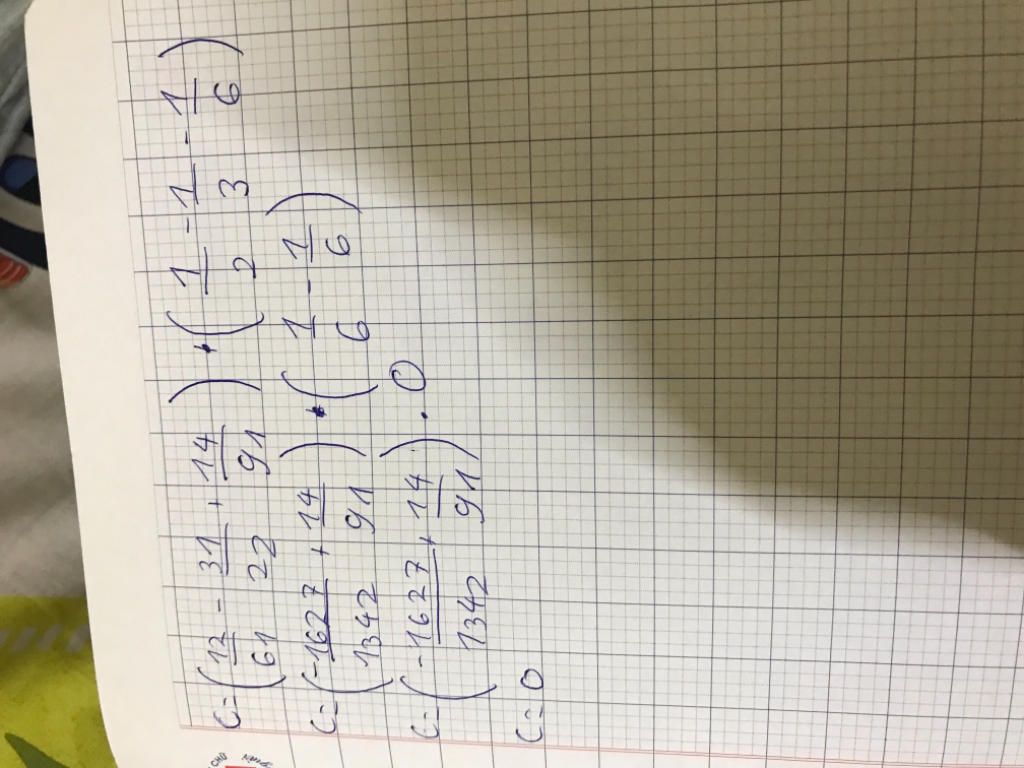 C=(12/61 - 31/22 + 14/91) . (1/2 - 1/3 - 1/6)
C=(-1627/1342 + 14/91) . (1/6 - 1/6)
C=(-1627/1342 + 14/91) . 0
C=0